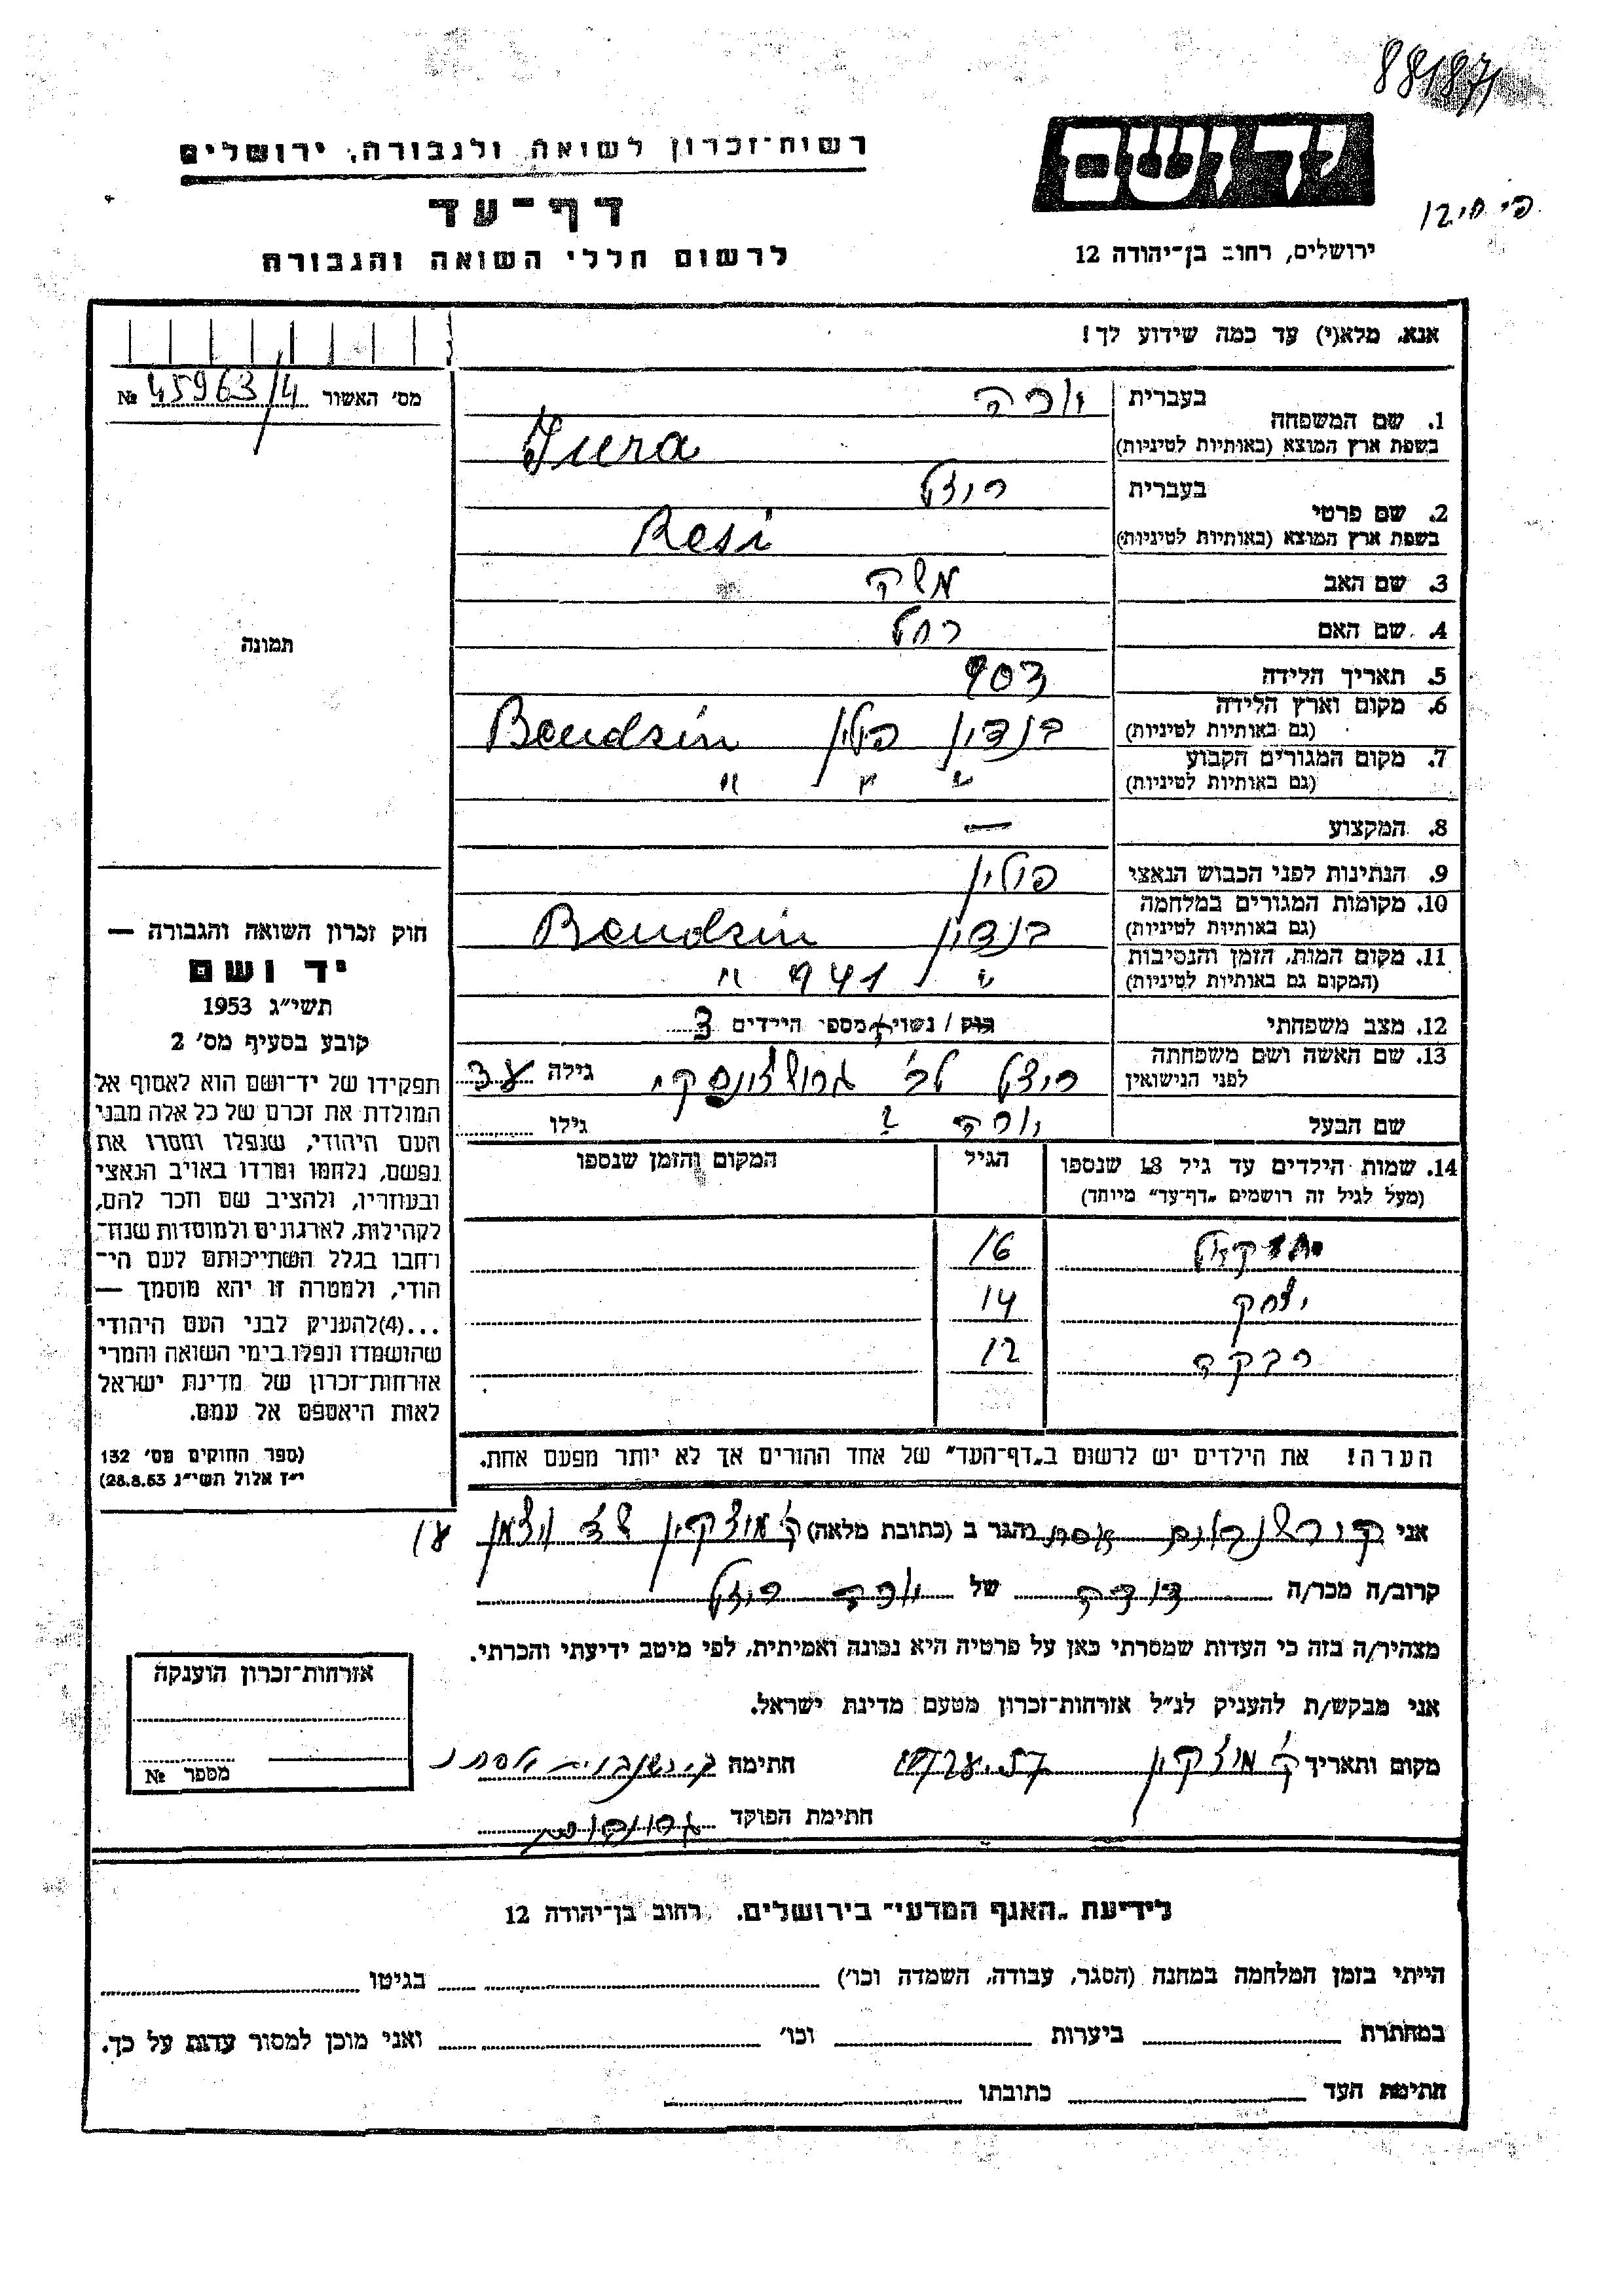 רשות־זכרון לשואה ולגבורה, ירושלים
דף־עד
לרשום חללי השואה והגבורה
יד ושם
ירושלים, רחוב בן־יהודה 12
אנא, מלא(י) עד כמה שידוע לך!
מס׳ האשור 45963/4 №
תמונה
1. שם המשפחה
בעברית
בשפת ארץ המוצא (באותיות לטיניות)
Jura
2. שם פרטי
בעברית רוצל
בשפת ארץ המוצא (באותיות לטיניות)
Resi
3. שם האב משה
4. שם האם רחל
5. תאריך הלידה 903
6. מקום וארץ הלידה בנדין פולין Bendzin
(גם באותיות לטיניות)
7. מקום המגורים הקבוע " " "
(גם באותיות לטיניות)
8. המקצוע —
9. הנתינות לפני הכבוש הנאצי פולין
10. מקומות המגורים במלחמה בנדין Bendzin
(גם באותיות לטיניות)
11. מקום המות, הזמן והנסיבות " 941 "
(המקום גם באותיות לטיניות)
12. מצב משפחתי רווק / נשוי מספר הילדים 3
13. שם האשה ושם משפחתה רוצל לב׳ גילה
לפני הנישואין
שם הבעל גילו
14. שמות הילדים עד גיל 18 שנספו הגיל המקום והזמן שנספו
(מעל לגיל זה רושמים „דף־עד״ מיוחד)
יחזקאל 16
יצחק 14
רבקה 12
הערה! את הילדים יש לרשום ב„דף־העד״ של אחד ההורים אך לא יותר מפעם אחת.
חוק זכרון השואה והגבורה —
יד ושם
תשי״ג 1953
קובע בסעיף מס׳ 2
תפקידו של יד־ושם הוא לאסוף אל
המולדת את זכרם של כל אלה מבני
העם היהודי, שנפלו ומסרו את
נפשם, נלחמו ומרדו באויב הנאצי
ובעוזריו, ולהציב שם וזכר להם,
לקהילות, לארגונים ולמוסדות שנח־
רחבו בגלל השתייכותם לעם הי־
הודי, ולמטרה זו יהא מוסמך —
...(4)להעניק לבני העם היהודי
שהושמדו ונפלו בימי השואה והמרי
אזרחות־זכרון של מדינת ישראל
לאות היאספם אל עמם.
(ספר החוקים מס׳ 132
י״ז אלול תשי״ג 28.8.53)
אני אסתר הגר ב (כתובת מלאה) ק׳ מוצקין
קרוב/ה מכר/ה דודה של רוצל
מצהיר/ה בזה כי העדות שמסרתי כאן על פרטיה היא נכונה ואמיתית, לפי מיטב ידיעתי והכרתי.
אני מבקש/ת להעניק לנ״ל אזרחות־זכרון מטעם מדינת ישראל.
מקום ותאריך ק׳ מוצקין חתימה
חתימת הפוקד
אזרחות־זכרון הוענקה
מספר №
לידיעת „האגף המדעי״ בירושלים, רחוב בן־יהודה 12
הייתי בזמן המלחמה במחנה (הסגר, עבודה, השמדה וכו׳) בגיטו
במחתרת ביערות וכו׳ ואני מוכן למסור עדות על כך.
חתימת העד כתובתו